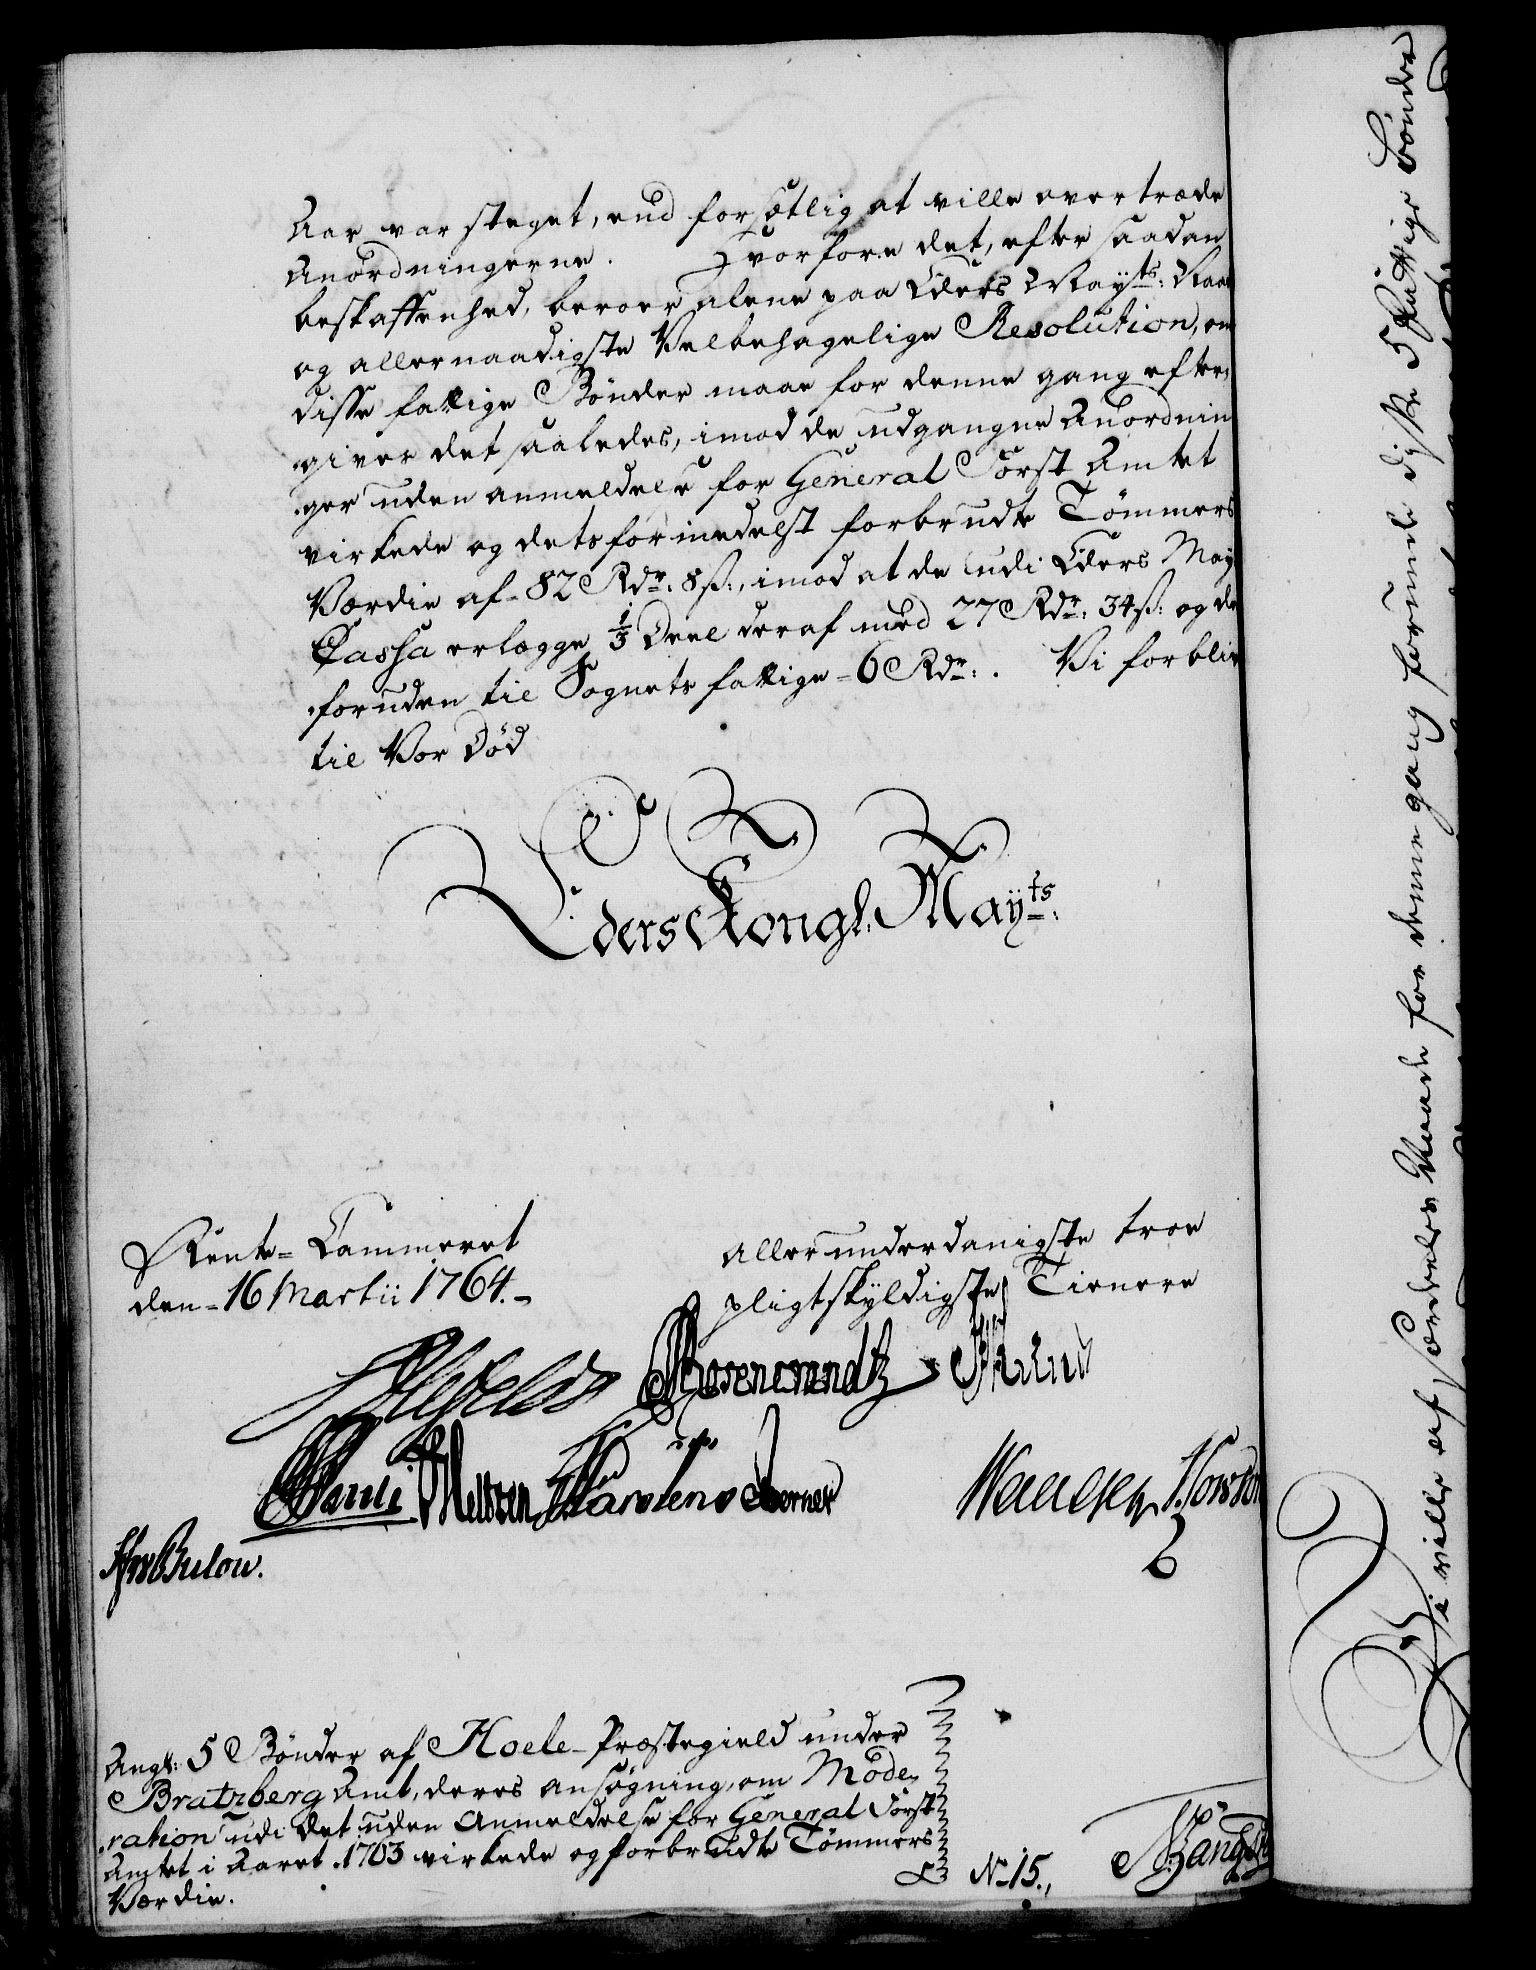 Aar var steget, end forsætlig at ville overtræde
Anordningerne. Hvorfore det, efter saadan
beskaffenhed, beroer alene paa Eders Mayts: Naad
og allernaadigste Velbehagelige Resolution, om
disse fattige Bønder maae for denne gang efter
gives det saaledes, imod de udgangne Anordnin
ger uden anmeldelse for General Forst Amtet
virkede og detsformedelst forbrudte Tømmers
Værdie af 82 Rdr: 8 ß:, imod at de udi Eders May
Cassa erlægge 1/3 Deel deraf med 27 Rdr: 34 ß: og de
foruden til Sognets fattige - 6 Rdr: . Vi forbliv
til Vor Død
Eders Kongl: Mayts:
Rente-Cammeret
den - 16 Martii 1764.-
Allerunderdanigste troe
pligtskyldigste Tienere
Ahlefeldt Rosencrandtz
Meltzen Karstens Berner
Bulow.
Angl: 5 Bønder af Hoele-Præstegield under
Bratzberg Amt, deres ansøgning, om Mode
ration udi det uden Anmeldelse for General Forst
Amtet i Aaret 1763 virkede og forbrudte Tømmers
Værdie.
No 15.,
Vi ville af særdeles Naade for denne gang forunde disse 5 fattige Bønder